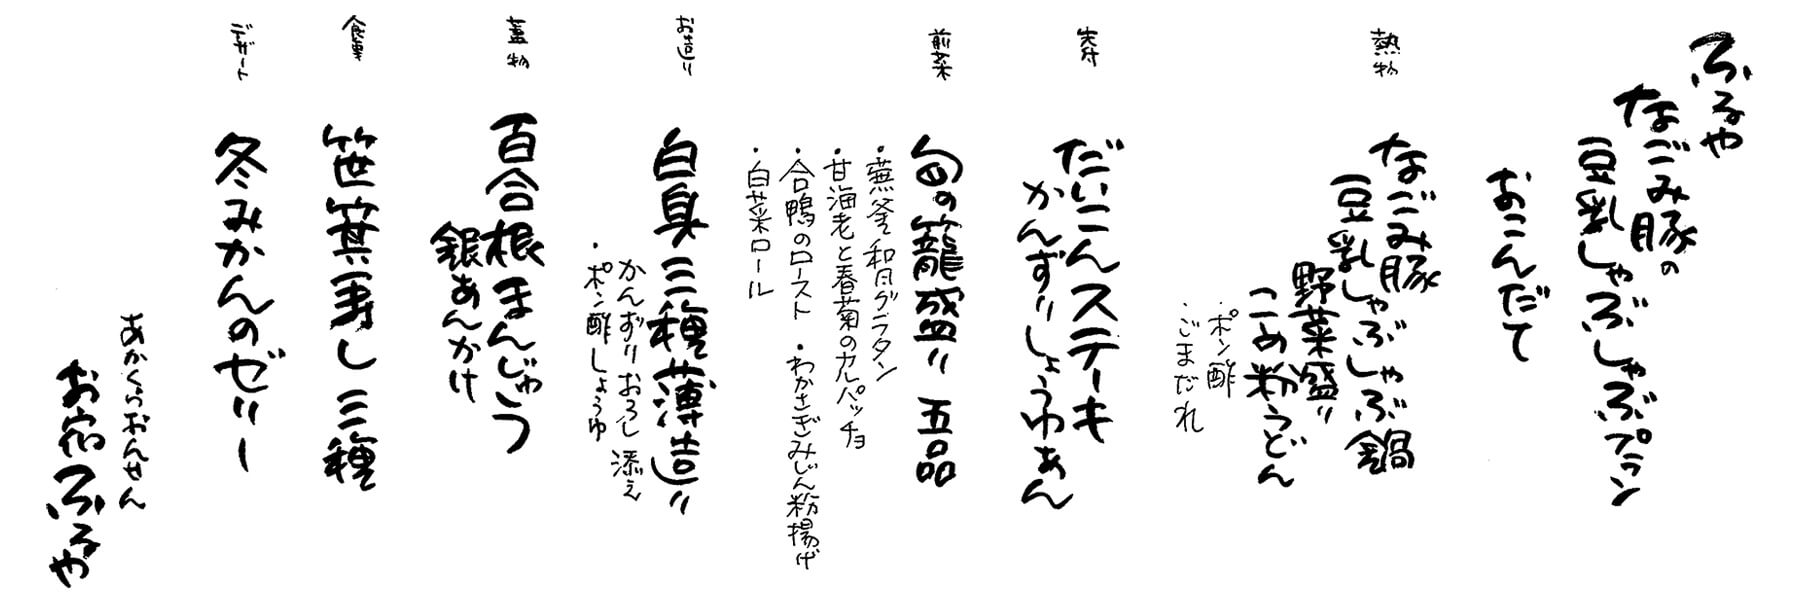 ふるや
なごみ豚の
豆乳しゃぶしゃぶプラン
おこんだて
熱物
なごみ豚
豆乳しゃぶしゃぶ鍋
野菜盛り
こめ粉うどん
・ポン酢
・ごまだれ
だいこんステーキ
かんずりしょうゆあん
前菜
旬の籠盛り 五品
・蕪釜和風グラタン
・甘海老と春菊のカルパッチョ
・合鴨のロースト ・わかさぎみじん粉揚げ
・白菜ロール
お造り
白身三種薄造り
かんずりおろし添え
・ポン酢しょうゆ
蓋物
百合根まんじゅう
銀あんかけ
食事
笹箕寿し 三種
デザート
冬みかんのゼリー
あかくらおんせん
お宿ふるや